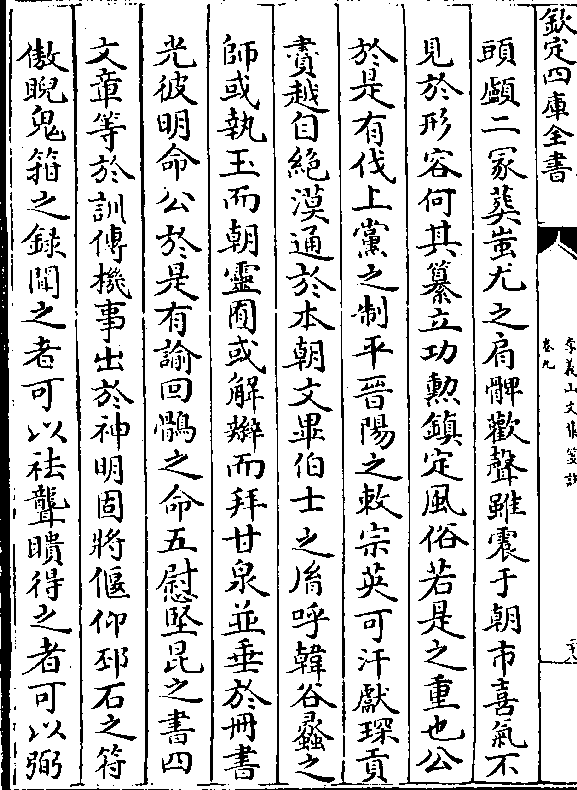 欽定四庫全書
李義山文集箋註
卷九
頭顱二冡葬蚩尤之肩髀歡聲雖震于朝市喜氣不
見於形容何其纂立功勲鎮定風俗若是之重也公
於是有伐上黨之制平晉陽之敕宗英可汗獻琛貢
賮越自絶漠通於本朝文畢伯士之胤呼韓谷蠡之
師或執玉而朝靈囿或解辮而拜甘泉並垂於冊書
光彼明命公於是有諭回鶻之命五慰堅昆之書四
文章等於訓傳機事出於神明固將偃仰邳石之符
傲睨鬼箝之録聞之者可以袪聾瞶得之者可以弼